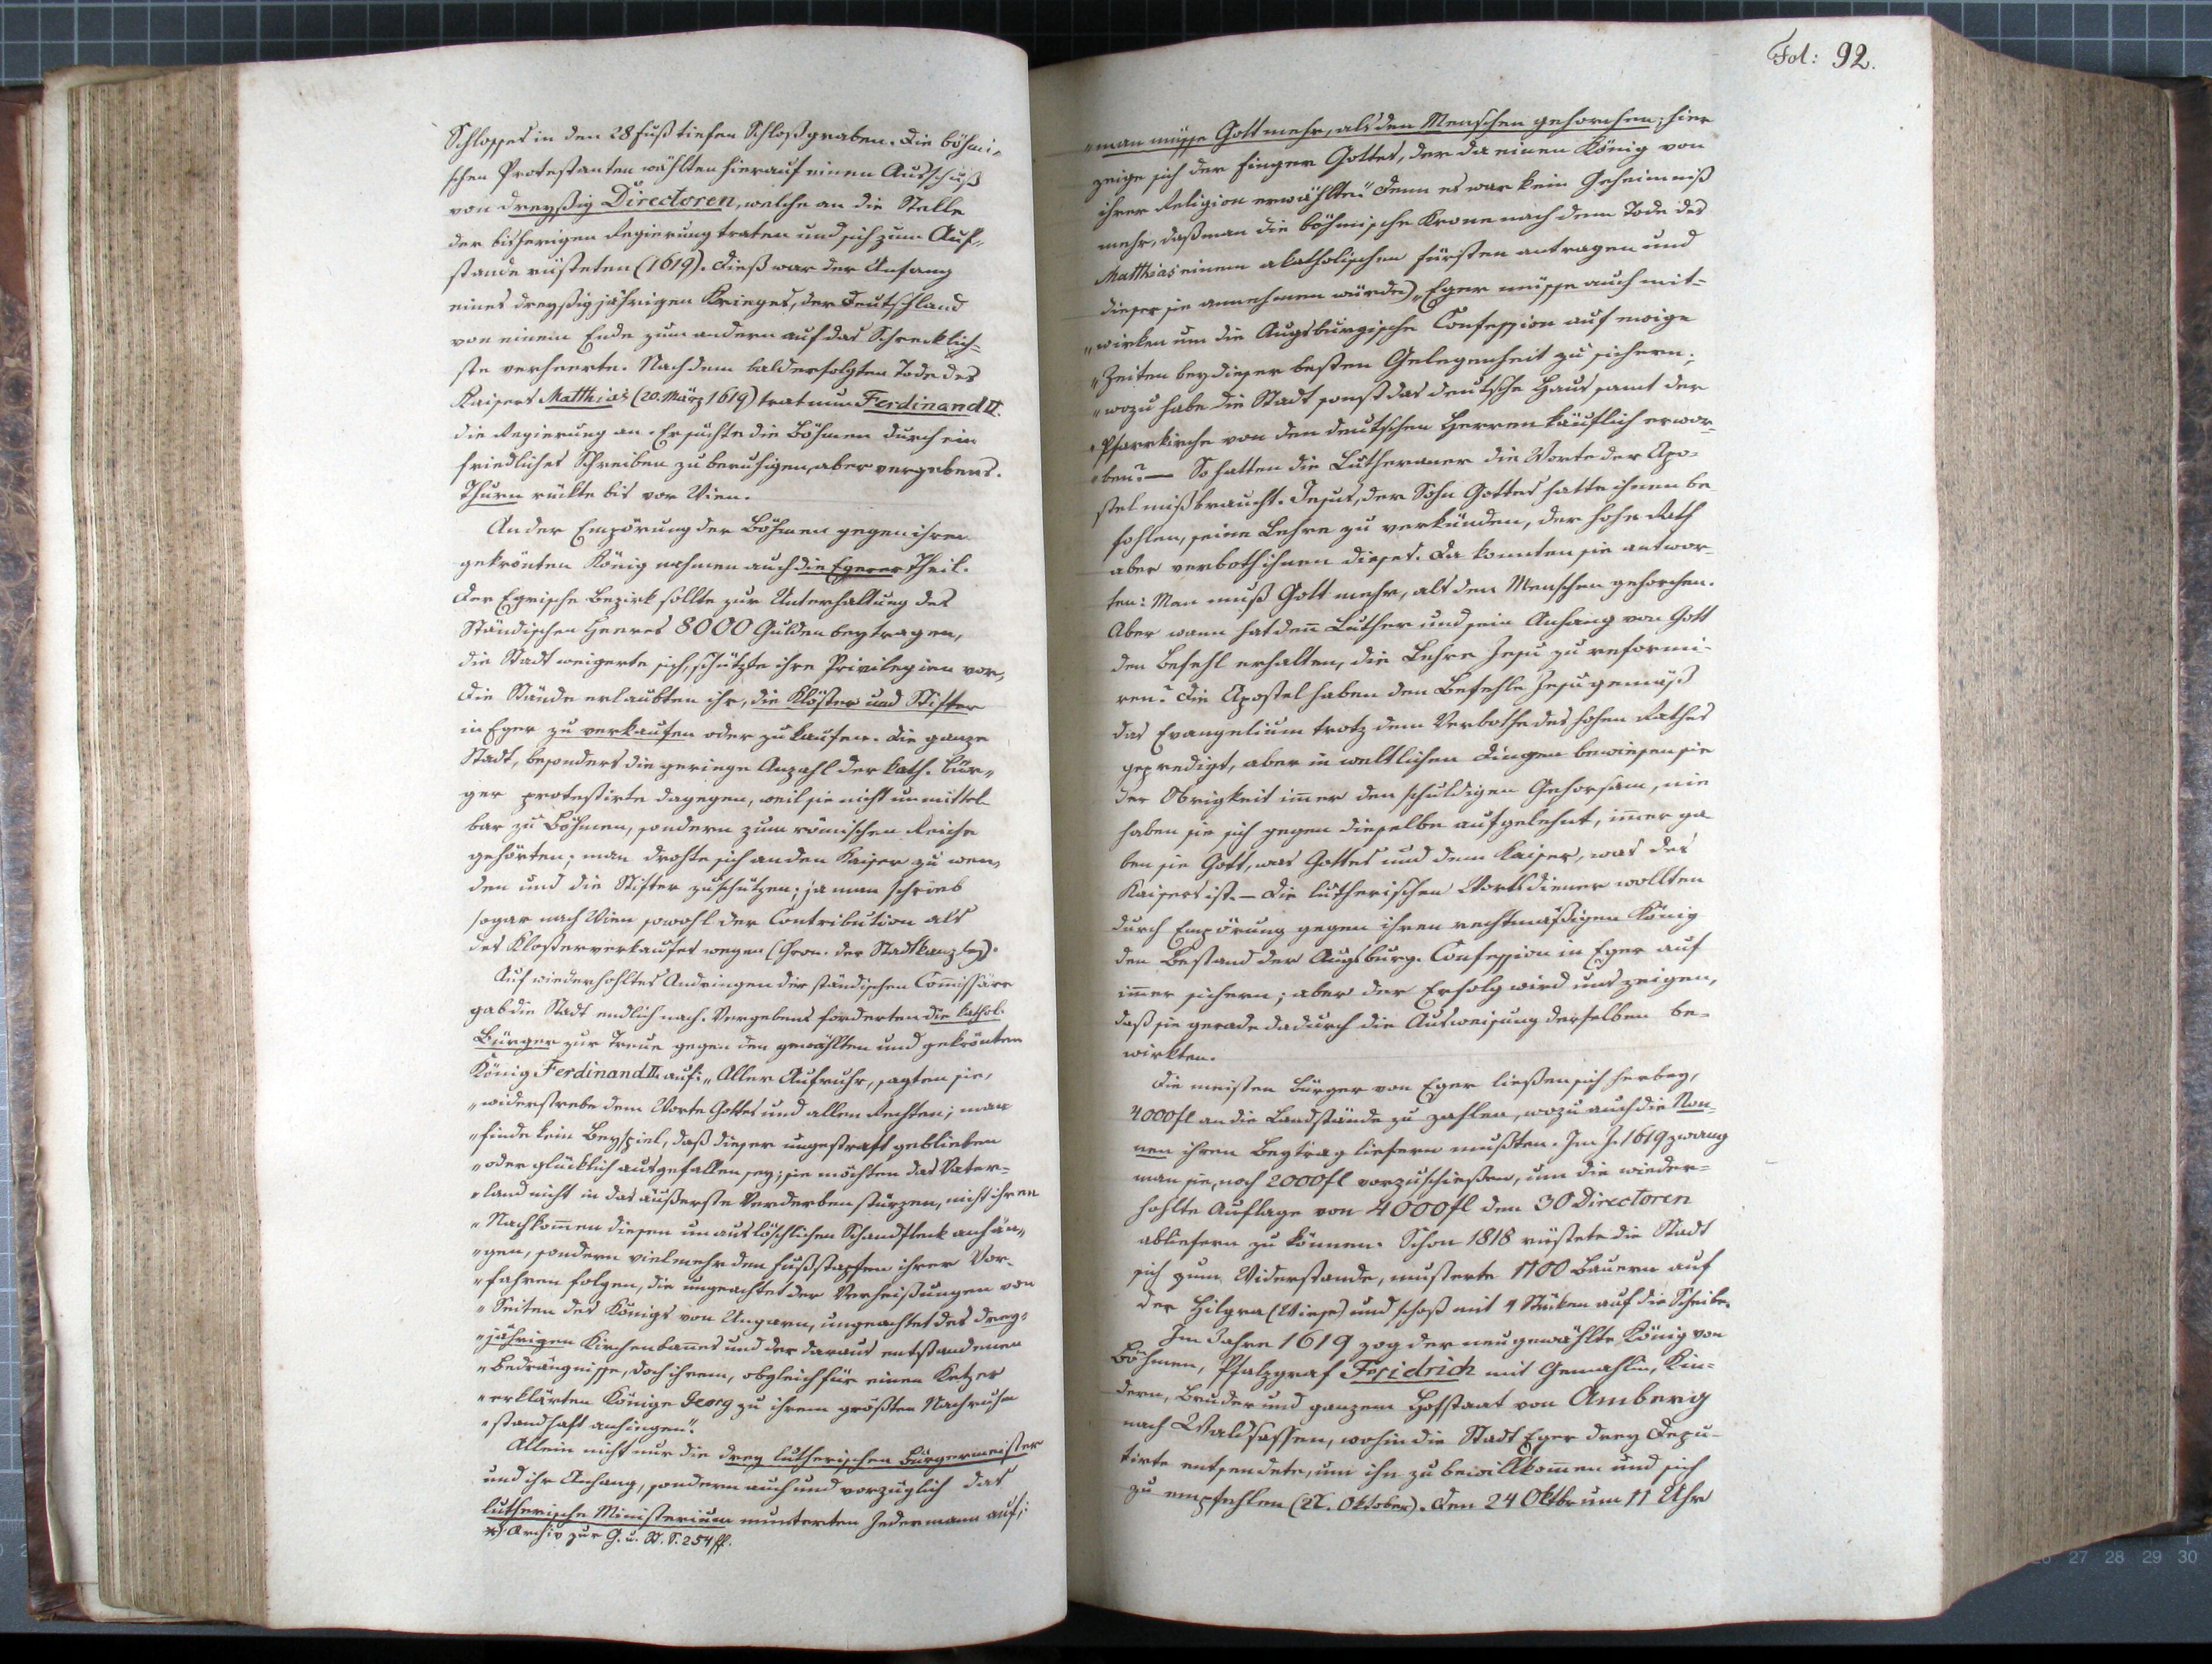 Schlosses in den 28 Fuß tiefen Schloßgraben. Die böhmi„
schen Protestanten wählten hierauf einen Ausschuß
von dreyßig Directoren, welche an die Stelle
der bisherigen Regierung traten und sich zum Auf„
stande rüsteten (1619). Dieß war der Anfang
eines dreyßigjährigen Krieges, der Deutschland
von einem Ende zum andern auf das Schrecklich=
ste verheerte. Nach dem bald erfolgten Tode des
Kaisers Matthias (20. März 1619) trat nun Ferdinand II.
die Regierung an. Er suchte die Böhmen durch ein
friedliches Schreiben zu beruhigen, aber vergebens.
Thurn rückte bis vor Wien.
An der Empörung der Böhmen gegen ihren
gekrönten König nahmen auch die Egerer Theil.
Der Egrische Bezirk sollte zur Unterhaltung des
Ständischen Heeres 8000 Gulden beytragen,
die Stadt weigerte sich, schützte ihre Privilegien vor,
Die Stände erlaubten ihr, die Klöster und Stifter
in Eger zu verkaufen oder zu kaufen. Die ganze
Stadt, besonders die geringe Anzahl der kath. Bür„
ger protestirte dagegen, weil sie nicht unmittel
bar zu Böhmen, sondern zum römischen Reiche
gehörten; man drohte sich an den Kaiser zu wen„
den und die Stifter zu schützen; ja man schrieb
sogar nach Wien sowohl der Contribution als
des Klosterverkaufes wegen (Chron. der Stadtkanzley).
Auf wiederhohltes Andringen der ständischen Com̄issäre
gab die Stadt endlich nach. Vergebens forderten die kathol.
Bürger zur Treue gegen den gewählten und gekrönten
König Ferdinand II. auf: „Aller Aufruhr, sagten sie,
„widerstrebe dem Worte Gottes und allen Rechten; man
„finde kein Beyspiel, daß dieser ungestraft geblieben
„oder glücklich ausgefallen sey; sie möchten das Vater=
„land nicht in das äußerste Verderben stürzen, nicht ihren
„Nachkom̄en diesen unauslöschlichen Schandfleck anhän„
„gen, sondern vielmehr den Fußstapfen ihrer Vor-
„fahren folgen, die ungeachtet der Verheißungen von
„Seiten des Königs von Ungarn, ungeachtet des drey=
„jährigen Kirchenban̄es und der daraus entstandenen
„Bedrängnisse, doch ihrem, obgleich für einen Ketzer
„erklärten Könige Georg zu ihrem größten Nachruhm
„standhaft anhingen.“
Allein nicht nur die drey lutherischen Bürgermeister
und ihr Anhang, sondern auch und vorzüglich das
lutherische Ministerium munterten Jedermann auf;
*) Archiv zur G. u. St. S. 254 ff.
Fol: 92.
„man müsse Gott mehr, als den Menschen gehorchen; hier
zeige sich der Finger Gottes, der da einen König von
ihrer Religion erwählte.“ Denn es war kein Geheimniß
mehr, daß man die böhmische Krone nach dem Tode des
Matthias einem akatholischen Fürsten antragen und
dieser sie annehmen würde) „Eger müsse auch mit=
„wirken um die Augsburgische Confession auf ewige
„Zeiten bey dieser besten Gelegenheit zu sichern;
„wozu habe die Stadt sonst das deutsche Haus samt der
„Pfarrkirche von den deutschen Herren käuflich erwor=
„ben? — So hatten die Lutheraner die Worte der Apo=
stel mißbraucht. Jesus, der Sohn Gottes hatte ihnen be
fohlen, seine Lehre zu verkünden, der hohe Rath
aber verboth ihnen dieses. Da konnten sie antwor
ten: Man muß Gott mehr, als den Menschen gehorchen.
Aber wann hat den̄ Luther und sein Anhang von Gott
den Befehl erhalten, die Lehre Jesu zu reformi-
ren? Die Apostel haben dem Befehle Jesu gemäß
das Evangelium trotz dem Verbothe des hohen Rathes
gepredigt, aber in weltlichen Dingen bewiesen sie
der Obrigkeit im̄er den schuldigen Gehorsam, nie
haben sie sich gegen dieselbe aufgelehnt, im̄er ga
ben sie Gott, was Gottes und dem Kaiser, was des
Kaisers ist. — Die lutherischen Wortsdiener wollten
durch Empörung gegen ihren rechtmäßigen König
den Bestand der Augsburg. Confession in Eger auf
im̄er sichern; aber der Erfolg wird uns zeigen,
daß sie gerade dadurch die Ausweisung derselben be=
wirkten.
Die meisten Bürger von Eger ließen sich herbey,
4000 fl an die Landstände zu zahlen, wozu auch die Non=
nen ihren Beytrag liefern mußten. Im J. 1619 zwang
man sie, noch 2000 fl vorzuschießen, um die wieder=
hohlte Auflage von 4000 fl den 30 Directoren
abliefern zu können. Schon 1818 rüstete die Stadt
sich zum Widerstande, musterte 1700 Bauern auf
der Hilgra (Wiese) und schoß mit 4 Stücken auf die Scheibe.
Im Jahre 1619 zog der neugewählte König von
Böhmen, Pfalzgraf Fridrich mit Gemahlin, Kin=
dern, Bruder und ganzem Hofstaat von Amberg
nach Waldsassen, wohin die Stadt Eger drey Depu=
tirte entsendete, um ihn zu bewillkom̄en und sich
zu empfehlen (22. Oktober). Den 24 Oktbr um 11 Uhr